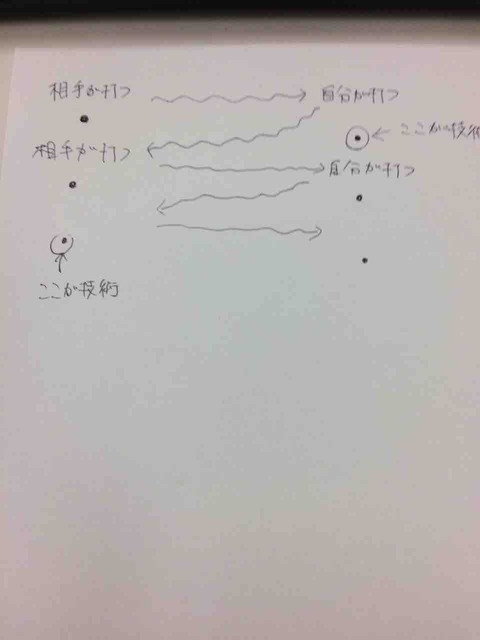 相手が打つ
自分が打つ
ここが技術
相手が打つ
自分が打つ
ここが技術